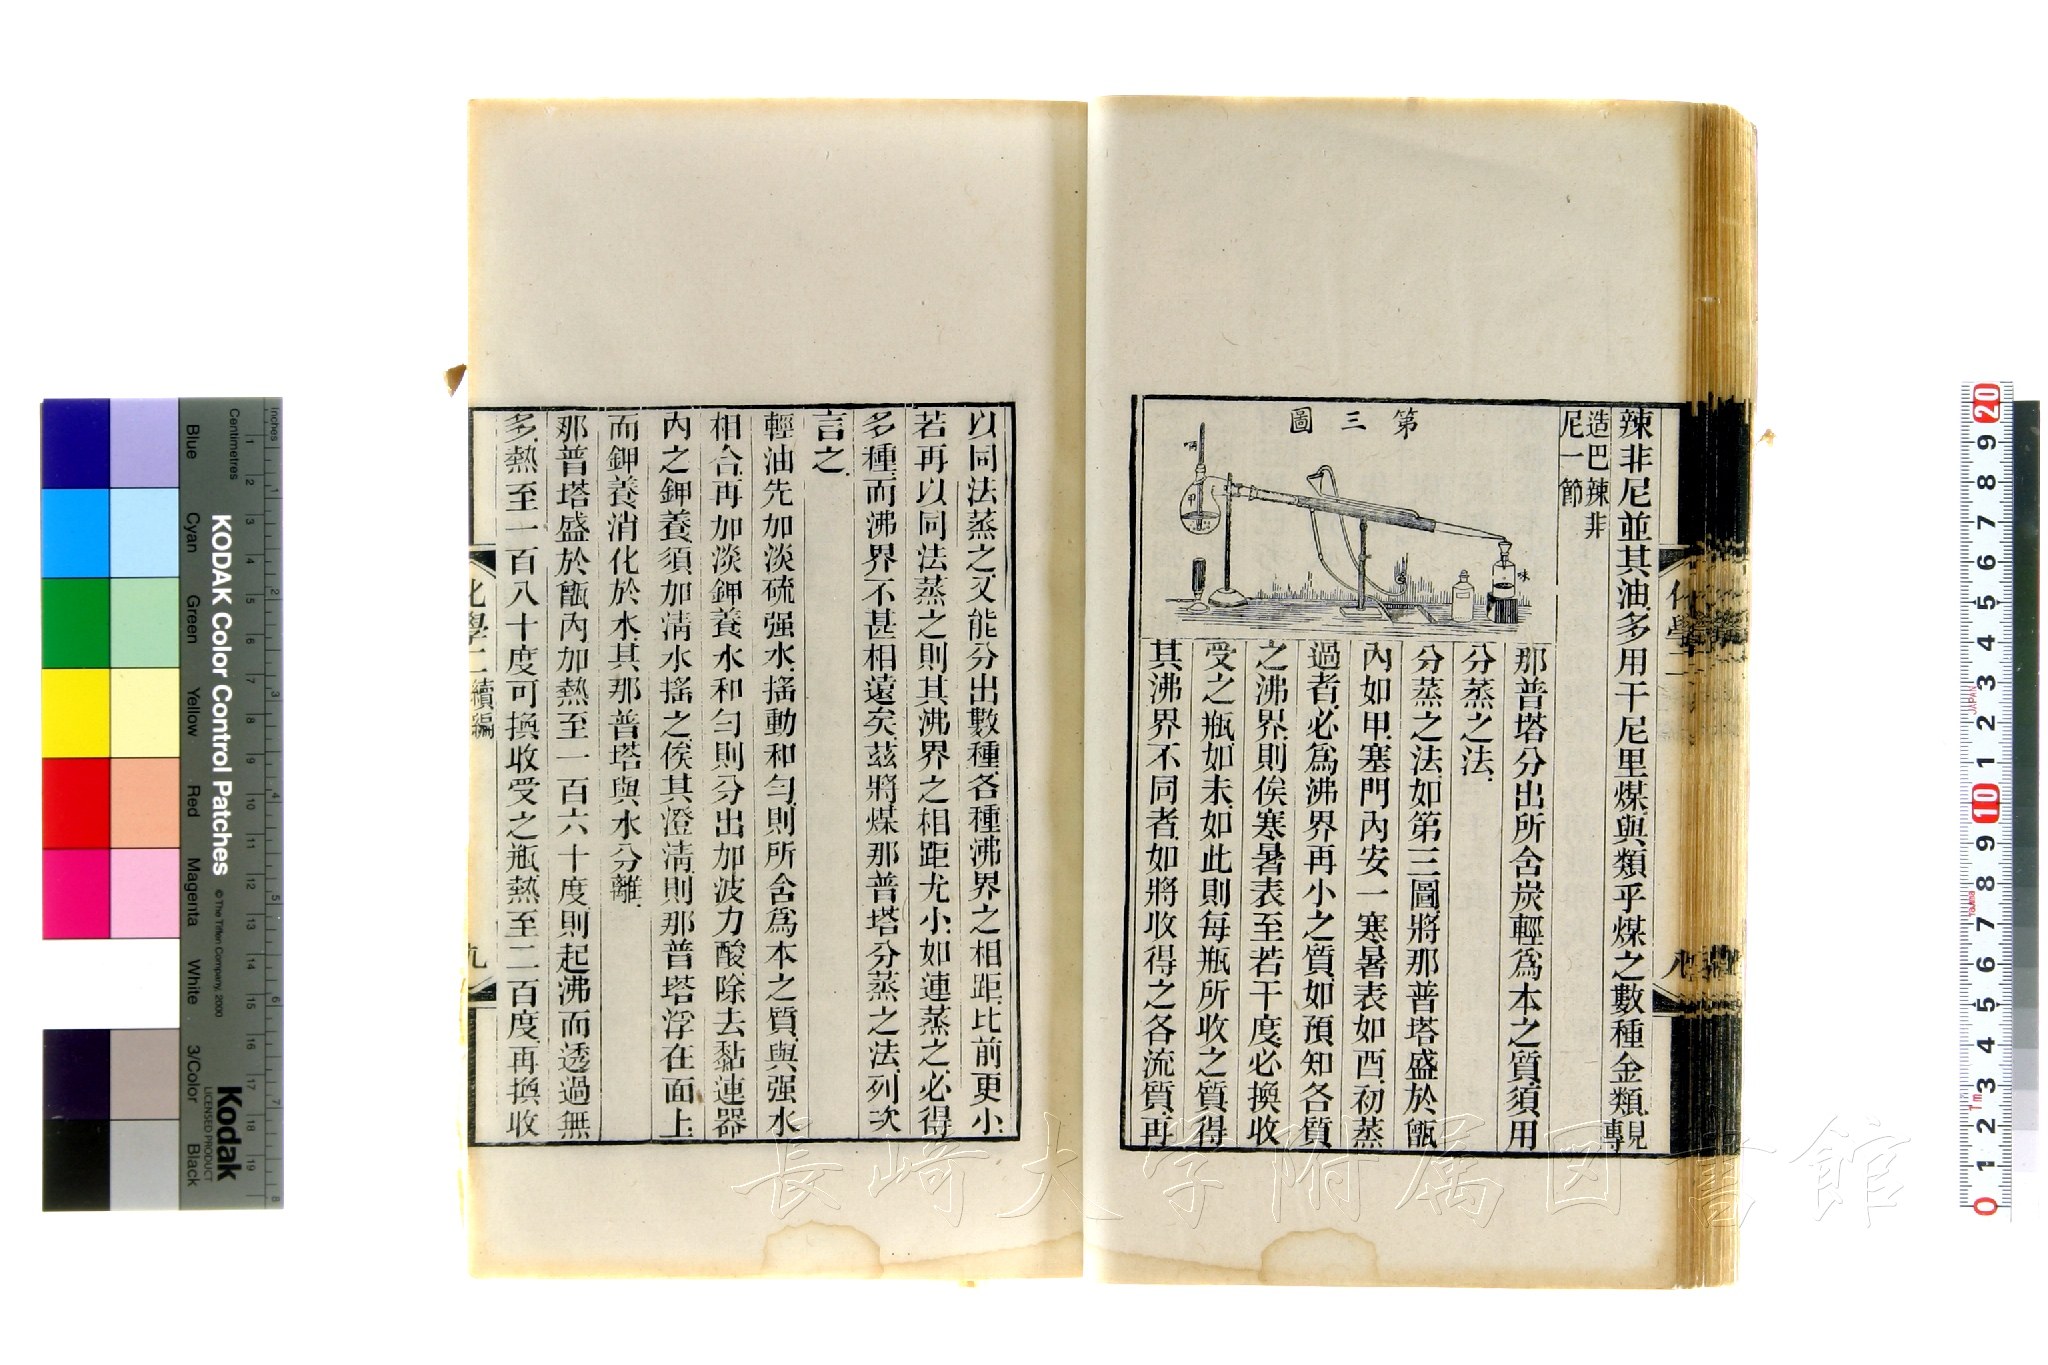 辣非尼並其油多用干尼里煤與類乎煤之數種金類見專
造巴辣非
尼一節
第三圖
甲
酉
味
那普塔分出所含炭輕爲本之質須用
分蒸之法
分蒸之法如第三圖將那普塔盛於甑
內如甲塞門內安一寒暑表如酉初蒸
過者必爲沸界再小之質如預知各質
之沸界則俟寒暑表至若干度必換收
受之瓶如未如此則每瓶所收之質得
其沸界不同者如將收得之各流質再
八
以同法蒸之又能分出數種各種沸界之相距比前更小
若再以同法蒸之則其沸界之相距尤小如連蒸之必得
多種而沸界不甚相遠矣茲將煤那普塔分蒸之法列次
言之
輕油先加淡硫强水搖動和勻則所含爲本之質與强水
相合再加淡鉀養水和勻則分出加波力酸除去黏連器
內之鉀養須加淸水搖之俟其澄淸則那普塔浮在面上
而鉀養消化於水其那普塔與水分離
那普塔盛於甑內加熱至一百六十度則起沸而透過無
多熱至一百八十度可換收受之瓶熱至二百度再換收
化學二續編
九
長崎大学附属図書館
KODAK Color Control Patches
© The Tiffen Company, 2000
Kodak
LICENSED PRODUCT
Inches
Centimetres
Blue
Cyan
Green
Yellow
Red
Magenta
White
3/Color
Black
1 2 3 4 5 6 7 8
1 2 3 4 5 6 7 8 9 10 11 12 13 14 15 16 17 18 19
20 9 8 7 6 5 4 3 2 1 10 9 8 7 6 5 4 3 2 1 0